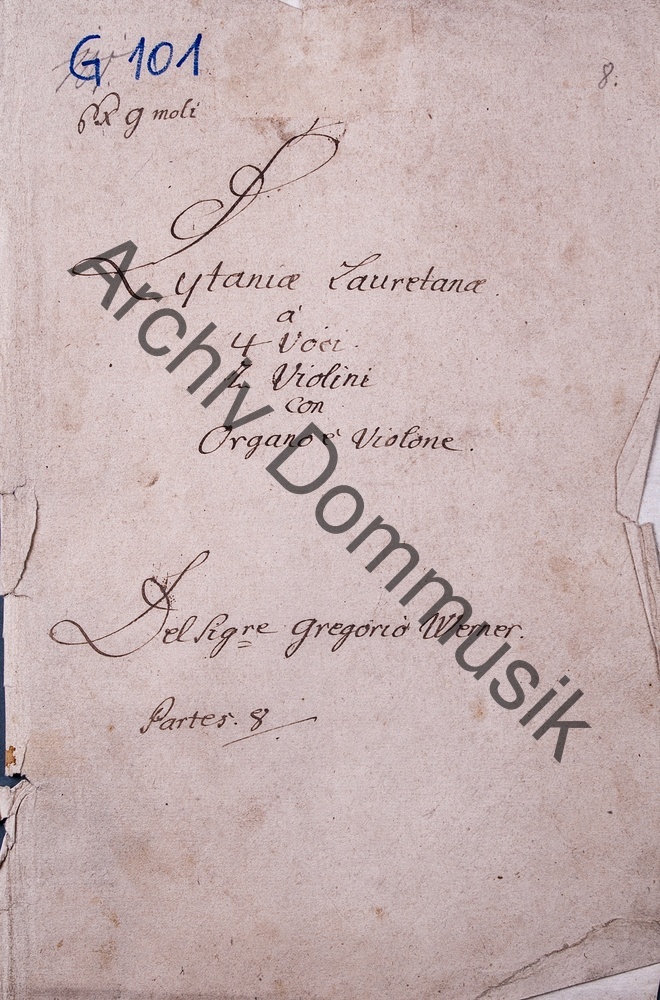 G 101
8.
Ex g moli
Lytaniæ Lauretanæ
à
4 Voci.
2 Violini
con
Organo è Violone.
Del Sigre Gregorio Werner.
Partes. 8
Archiv Dommusik